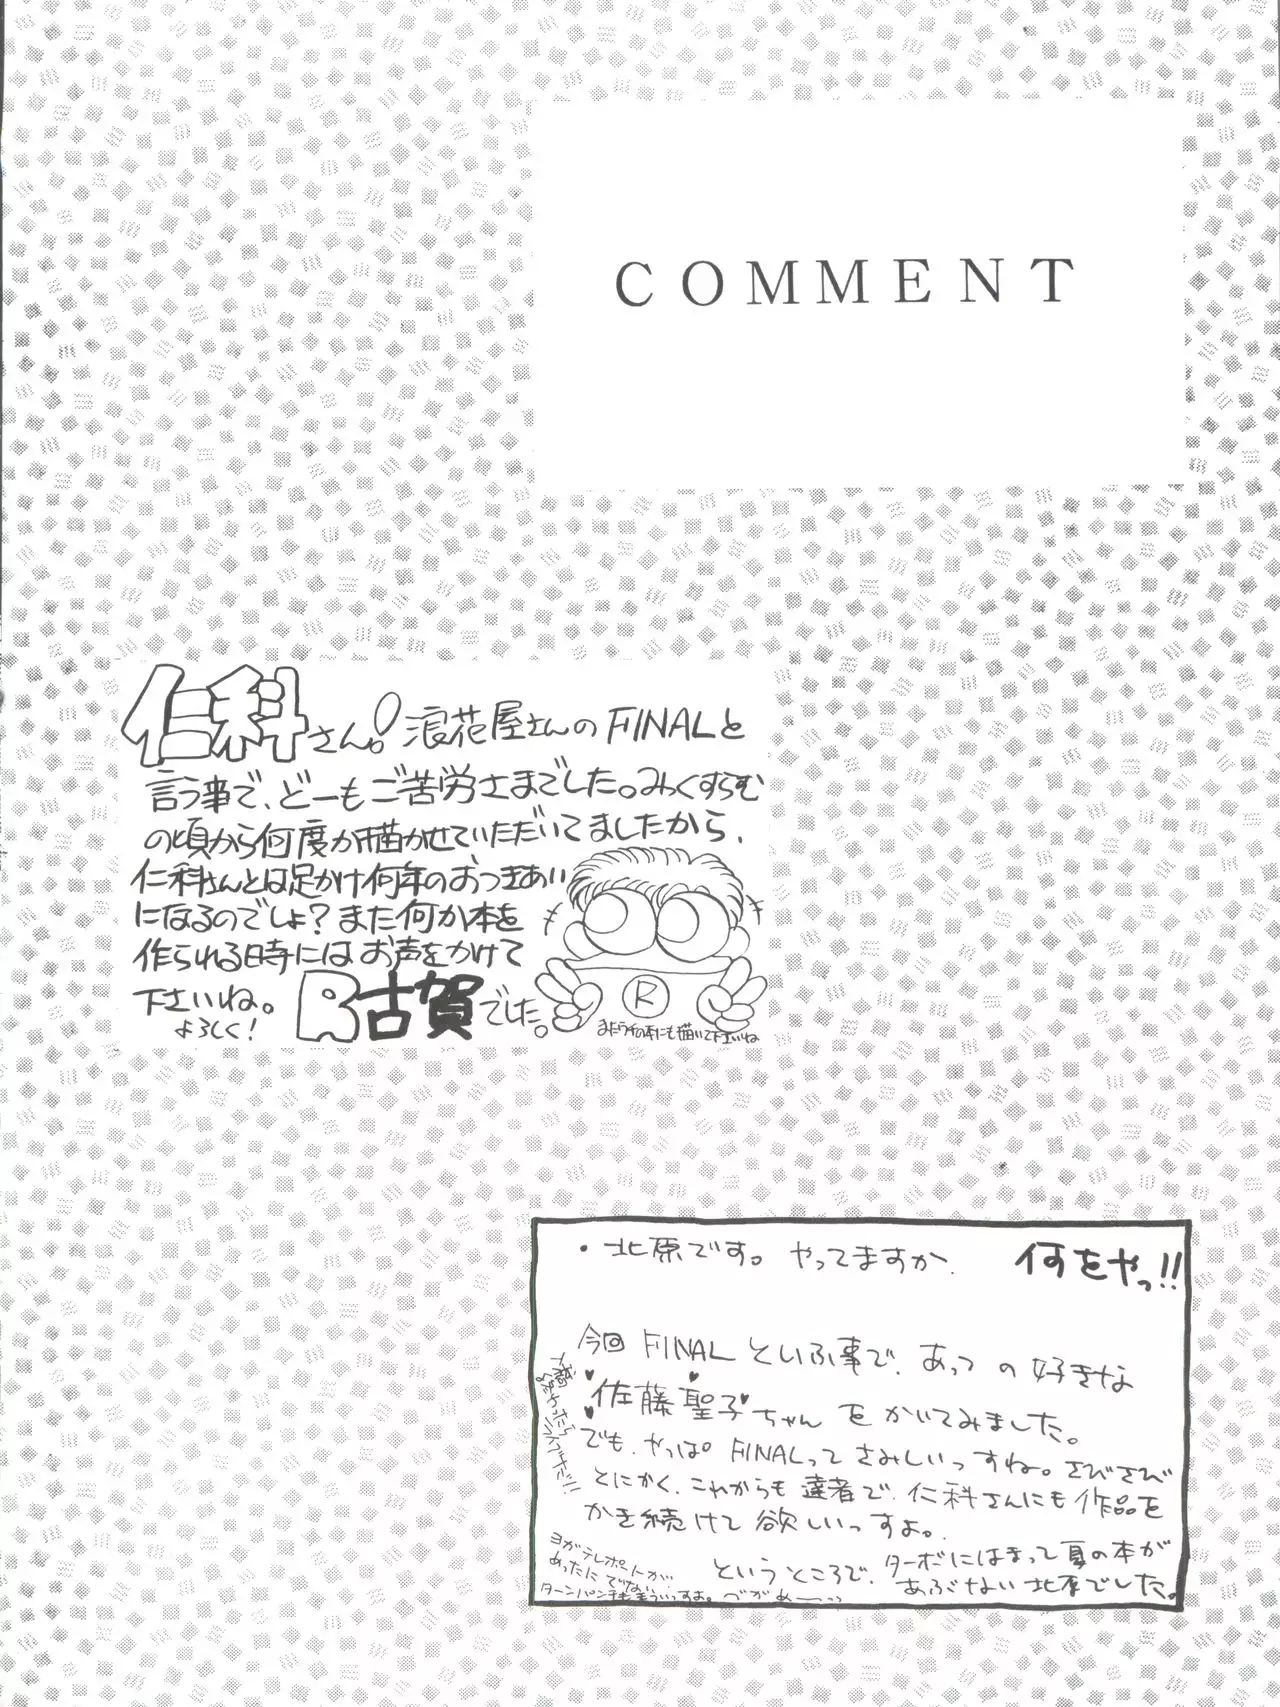 COMMENT
仁科さん!浪花屋さんのFINALと
言う事で、どーもご苦労さまでした。みっくすらむ
の頃から何度か描かせていただいてましたから、
仁科さんとは足かけ何年のおつきあい
になるのでしょ?また何か本を
作られる時にはお声をかけて
下さいね。
よろしく!
R古賀でした。
R
またうちの本にも描いて下さいね
・北原です。やってますか。 何をやっ!!
今回FINALといふ事で、あっしの好きな
佐藤聖子ちゃんをかいてみました。
でも、やっぱFINALってさみしいっすね。さびさび
とにかく、これからも達者で、仁科さんにも作品を
かき続けて欲しいっすよ。
というところで、ターボにはまって夏の本が
あぶない北原でした。
ヨガテレポートが
あったにでない
ターンパンチも